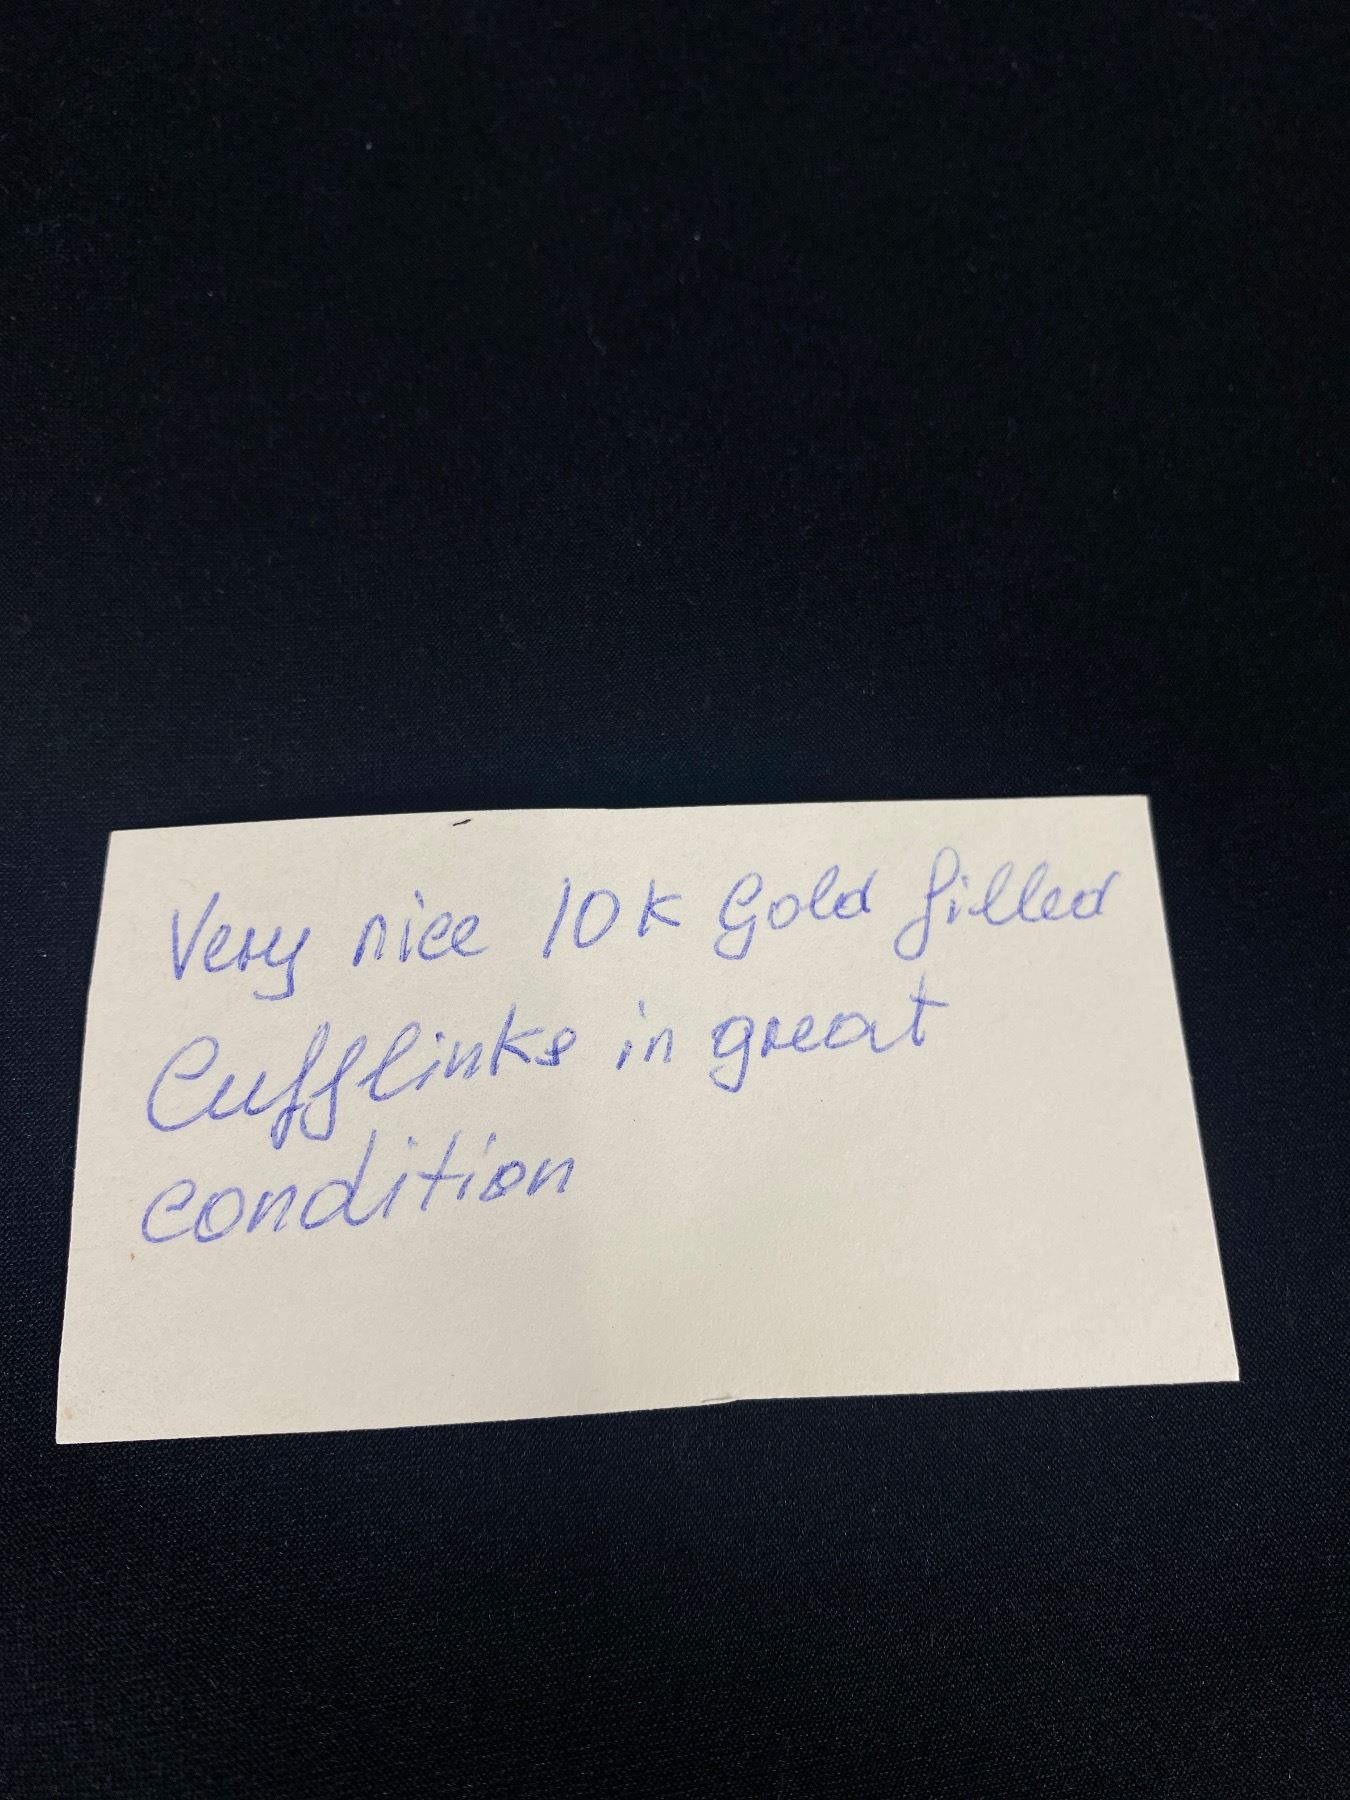 Very nice 10K Gold filled
Cufflinks in great
condition